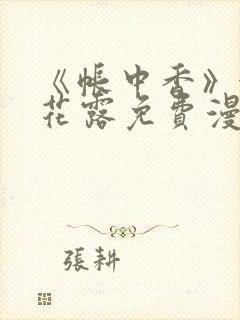 《帳中香》
花露免費漫
張耕